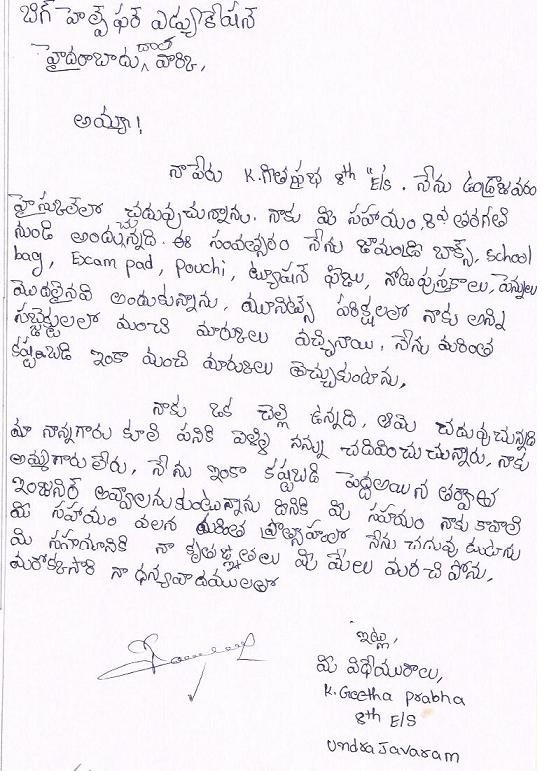 బిగ్ హెల్ప్ ఫర్ ఎడ్యుకేషన్
హైదరాబాదు దాత వార్కి,
అయ్యా!
నా పేరు K.గీతప్రభ 8th "E/S. నేను ఉండ్రాజవరం
హైస్కూలులో చదువుచున్నాను. నాకు మి సహాయం 8వ తరగతి
నుండి అందుచ్చున్నది. ఈ సంవత్సరం నేను జామెంట్రి బాక్స్, school
bag, Exam pad, pouchi, ట్యూషన్ ఫీజు, నోటుపుస్తకాలు, పెన్నులు
మొదలైనవి అందుకున్నాను. మూనిట్స్ పరిక్షలలో నాకు అన్ని
సబ్జెక్టులలో మంచి మార్కులు వచ్చినాయి. నేను మరింత
కష్టబడి ఇంకా మంచి మారుకులు తెచ్చుకుంటాను.
నాకు ఒక చెల్లి ఉన్నది. ఆమె చదువుచున్నది
మా నాన్నగారు కూలి పనికి వెళ్ళి నన్ను చదివించుచున్నారు. నాకు
అమ్మగారు లేరు. నేను ఇంకా కష్టబడి పెద్దఅయిన తర్వాత
ఇంజనీర్ అవ్వాలనుకుంటున్నాను దినికి మీ సహయం నాకు కావాలి
మీ సహాయం వలన మరింత ప్రోత్సాహంలో నేను చదువు
మి సహయానికి నా కృతజ్ఞతలు మీ మేలు మరిచి పోను.
మరొక్కసారి నా ధన్యవాదములతో
ఇట్లు,
మీ విధేయురాలు,
K.Geetha prabha
8th E/S
undrajavaram